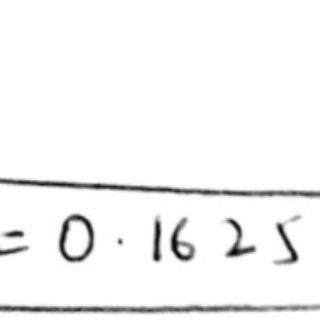 = 0.1625